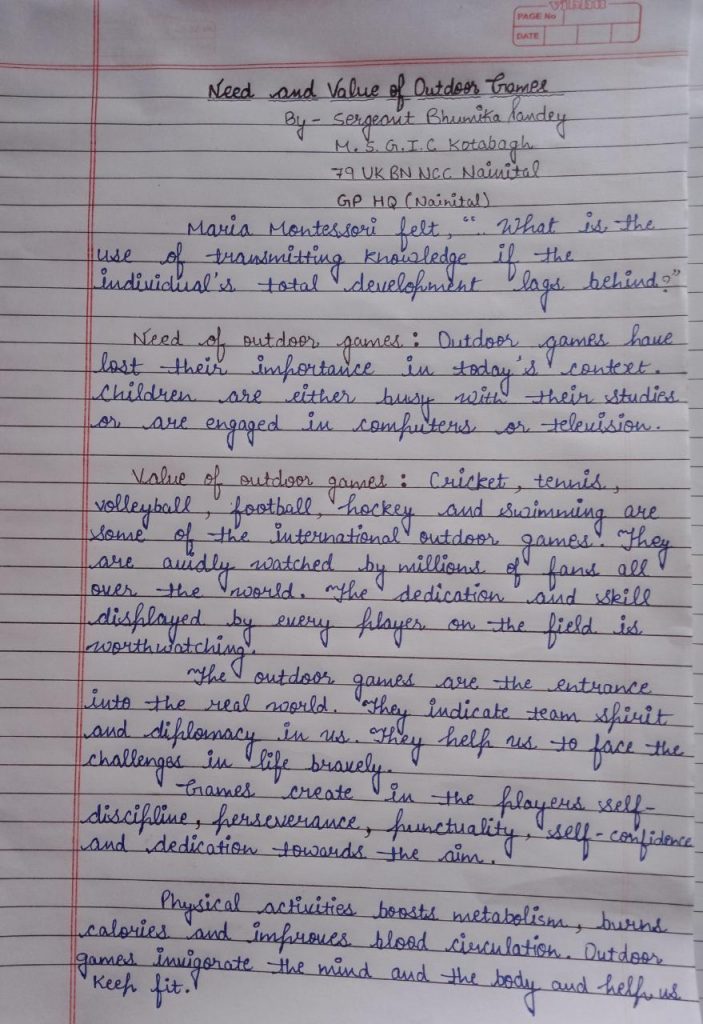 PAGE No
DATE
Need and Value of Outdoor Games
By - Sergeant Bhumika Pandey
M. S. G. I. C Kotabagh
79 UK BN NCC Nainital
GP HQ (Nainital)
Maria Montessori felt, ".. What is the
use of transmitting knowledge if the
individual's total development lags behind?"
Need of outdoor games : Outdoor games have
lost their importance in today's context.
Children are either busy with their studies
or are engaged in computers or television.
Value of outdoor games : Cricket, tennis,
volleyball, football, hockey and swimming are
some of the international outdoor games. They
are avidly watched by millions of fans all
over the world. The dedication and skill
displayed by every player on the field is
worthwatching.
The outdoor games are the entrance
into the real world. They indicate team spirit
and diplomacy in us. They help us to face the
challenges in life bravely.
Games create in the players self-
discipline, perseverance, punctuality, self-confidence
and dedication towards the aim.
Physical activities boosts metabolism, burns
calories and improves blood circulation. Outdoor
games invigorate the mind and the body and help us
keep fit.